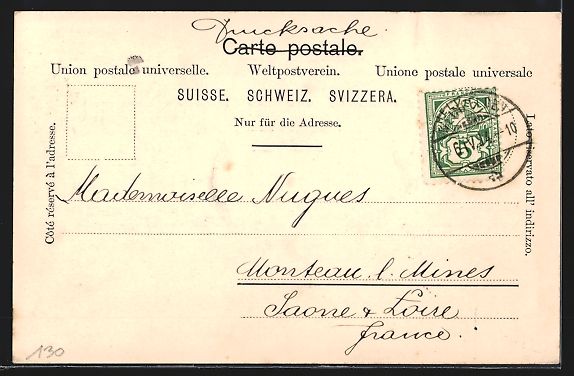 Drucksache
Carte postale.
Union postale universelle. Weltpostverein. Unione postale universale
SUISSE. SCHWEIZ. SVIZZERA.
Nur für die Adresse.
Côté réservé à l'adresse.
Lato riservato all' indirizzo.
5
10
Mademoiselle Nugues
Monteau l. Mines
Saone & Loire
france.
130